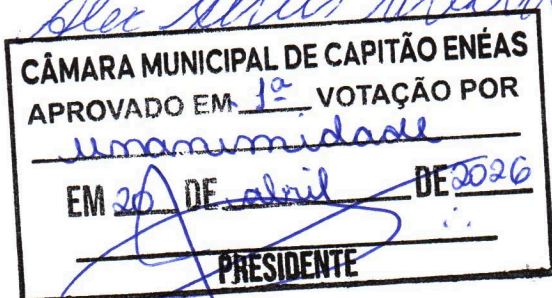 CÂMARA MUNICIPAL DE CAPITÃO ENÉAS
APROVADO EM 1ª VOTAÇÃO POR
unanimidade
EM 20 DE abril DE 2026
PRESIDENTE